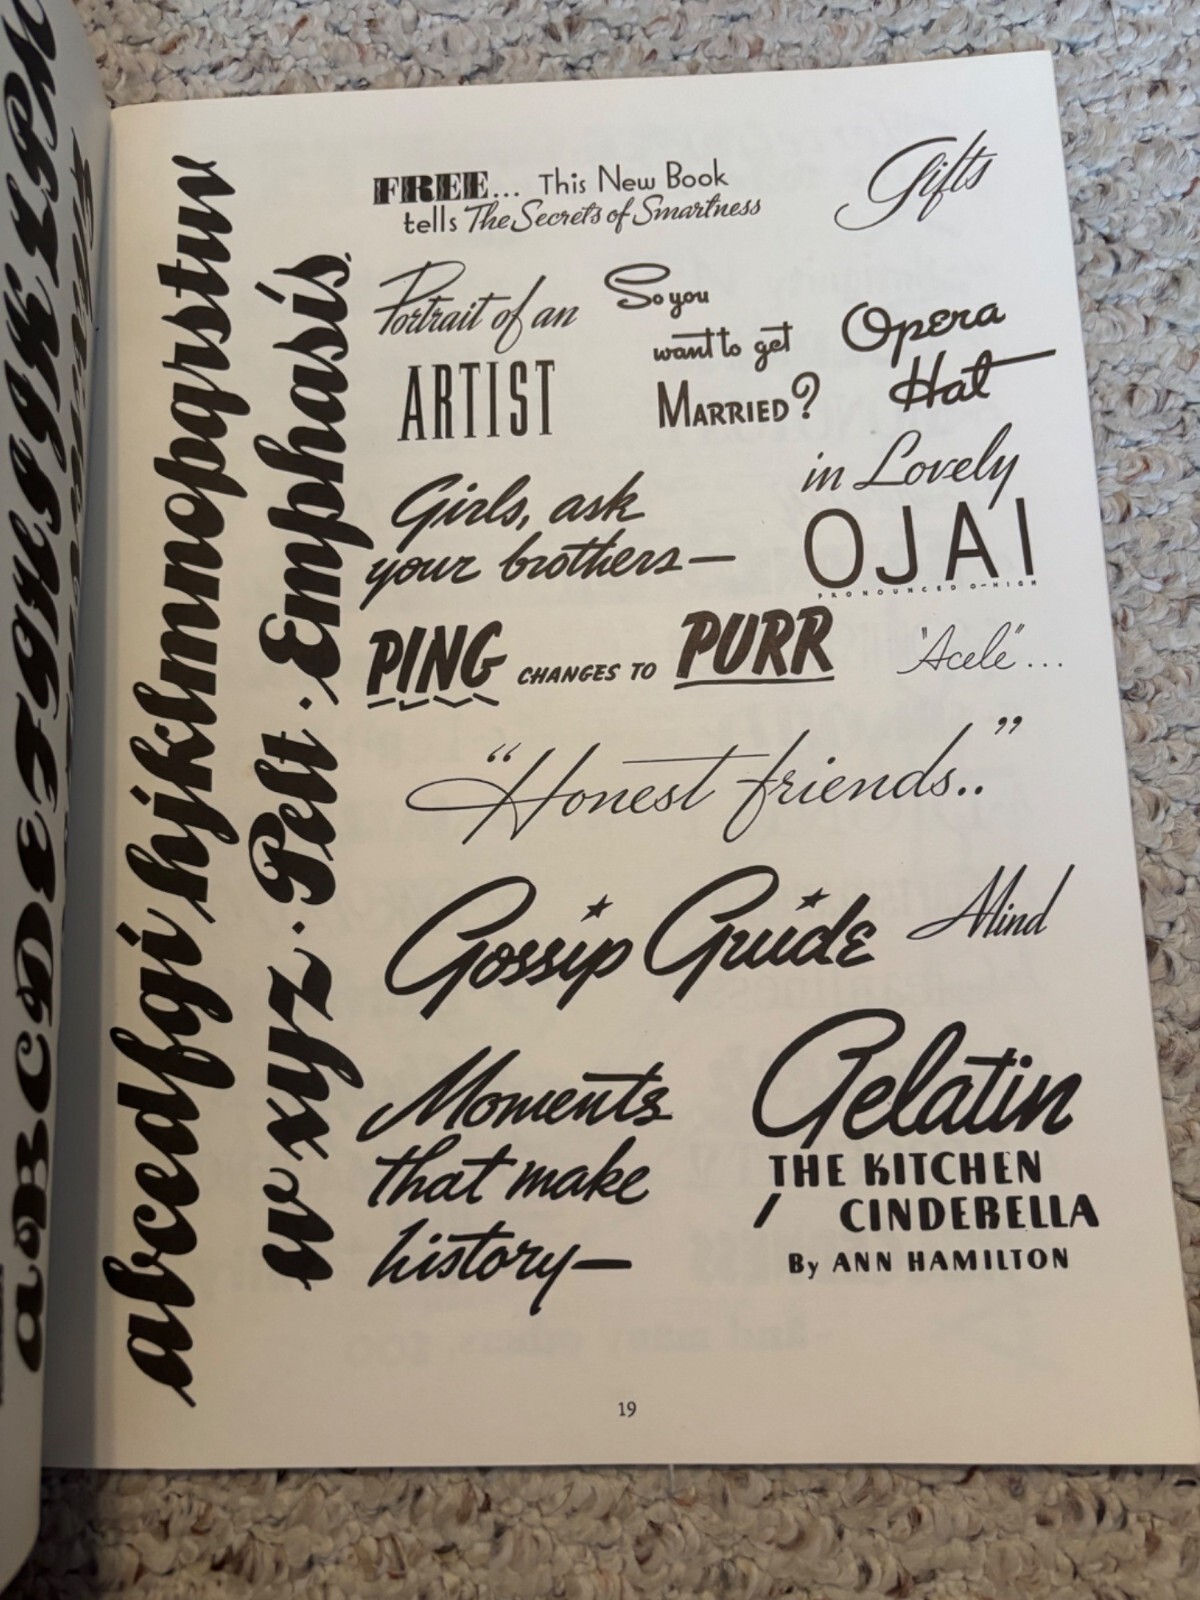 abcedfgi hjklmnopqrstuv
wxyz · Pelt · Emphasis
FREE... This New Book
tells The Secrets of Smartness
Gifts
Portrait of an
ARTIST
So you
want to get
MARRIED?
Opera
Hat
in Lovely
OJAI
PRONOUNCED O-HIGH
Girls, ask
your brothers—
PING CHANGES TO PURR
"Acele"...
“Honest friends..”
Gossip Guide
Mind
Moments
that make
history—
Gelatin
THE KITCHEN
CINDERELLA
By ANN HAMILTON
19